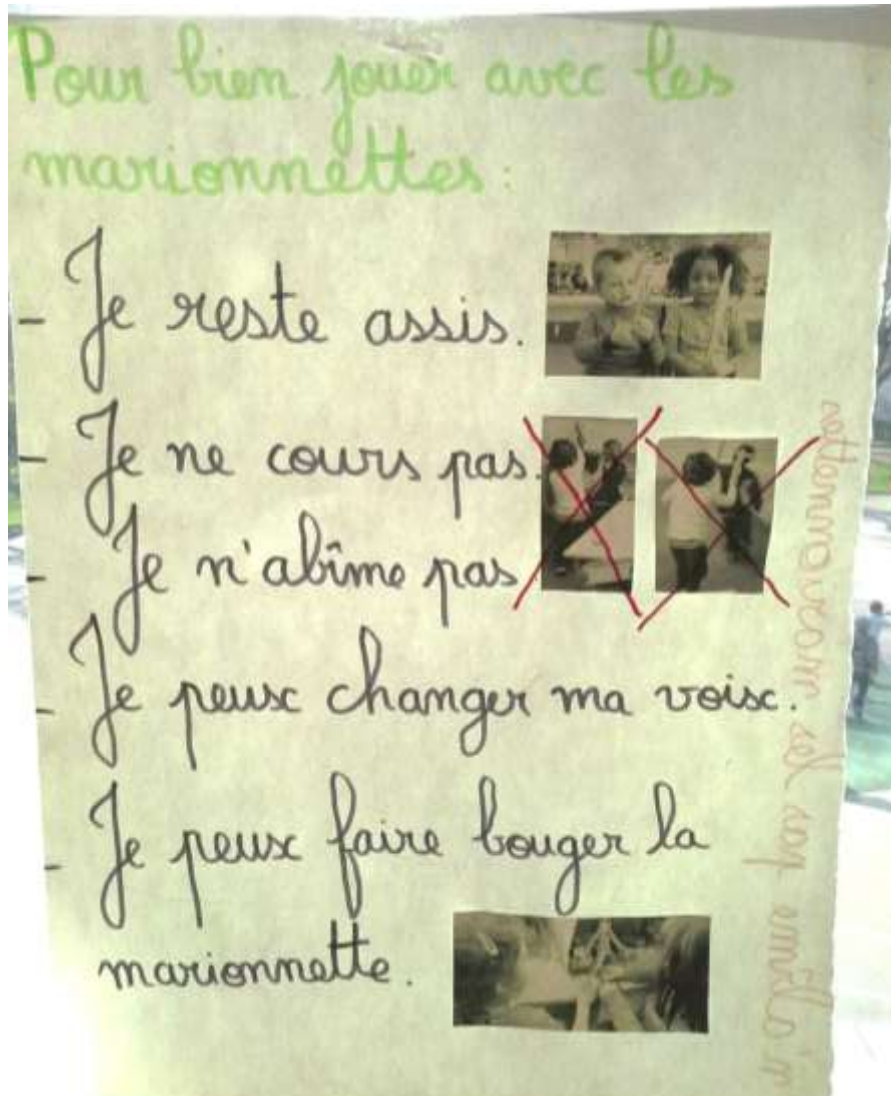 Pour bien jouer avec les
marionnettes :
- Je reste assis.
- Je ne cours pas.
- Je n'abîme pas
- Je peux changer ma voix.
- Je peux faire bouger la
marionnette.